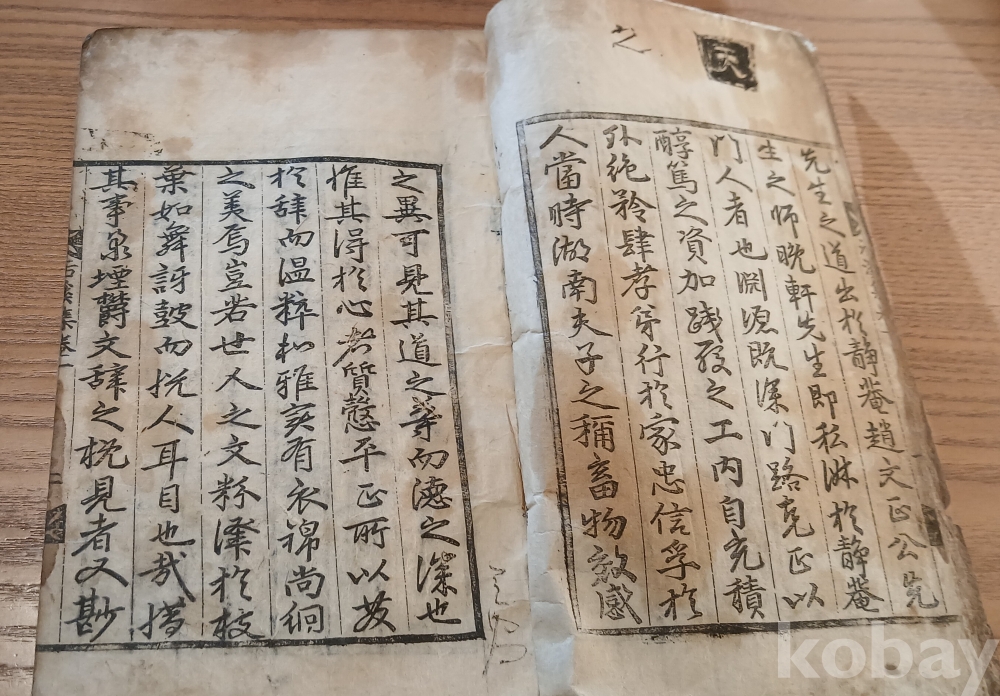 之
先生之道出於靜菴趙文正公先
生之師晩軒先生即私淑於靜菴
門人者也淵源旣深門路克正以
醇篤之資加踐之工內自充積
外絶矜肆孝行於家忠信孚於
人當時湖南夫子之稱畜物感
之異可見其道之而德之深也
惟其得於心者質慤平正所以發
於辞而温粹和雅有衣錦尚絅
之美焉豈若世人之文粉澤於枝
葉如舞訝鼓而悦人耳目也哉
其事堙欝文辞之槪見者又尠
集卷一
kobay